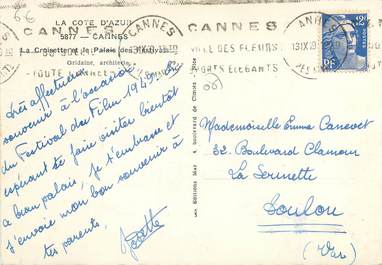 6€
LA COTE D'AZUR
5877 — CANNES
La Croisette et le Palais des Festivals
Gridaine, architecte
CANNES
CANNES
VILLE DES FLEURS
SPORTS ELEGANTS
13 IX 1949
12F
RF
Très affectueux
souvenir à l'occasion
du Festival du Film 1949. En
espérant te faire visiter bientôt
ce beau palais, je t'embrasse et
j'envoie mon bon souvenir à
tes parents.
Josette
Les Editions Mar
boulevard de
Mademoiselle Emma Canevet
32 Boulevard Clamour
La Serinette
Toulon
(Var)